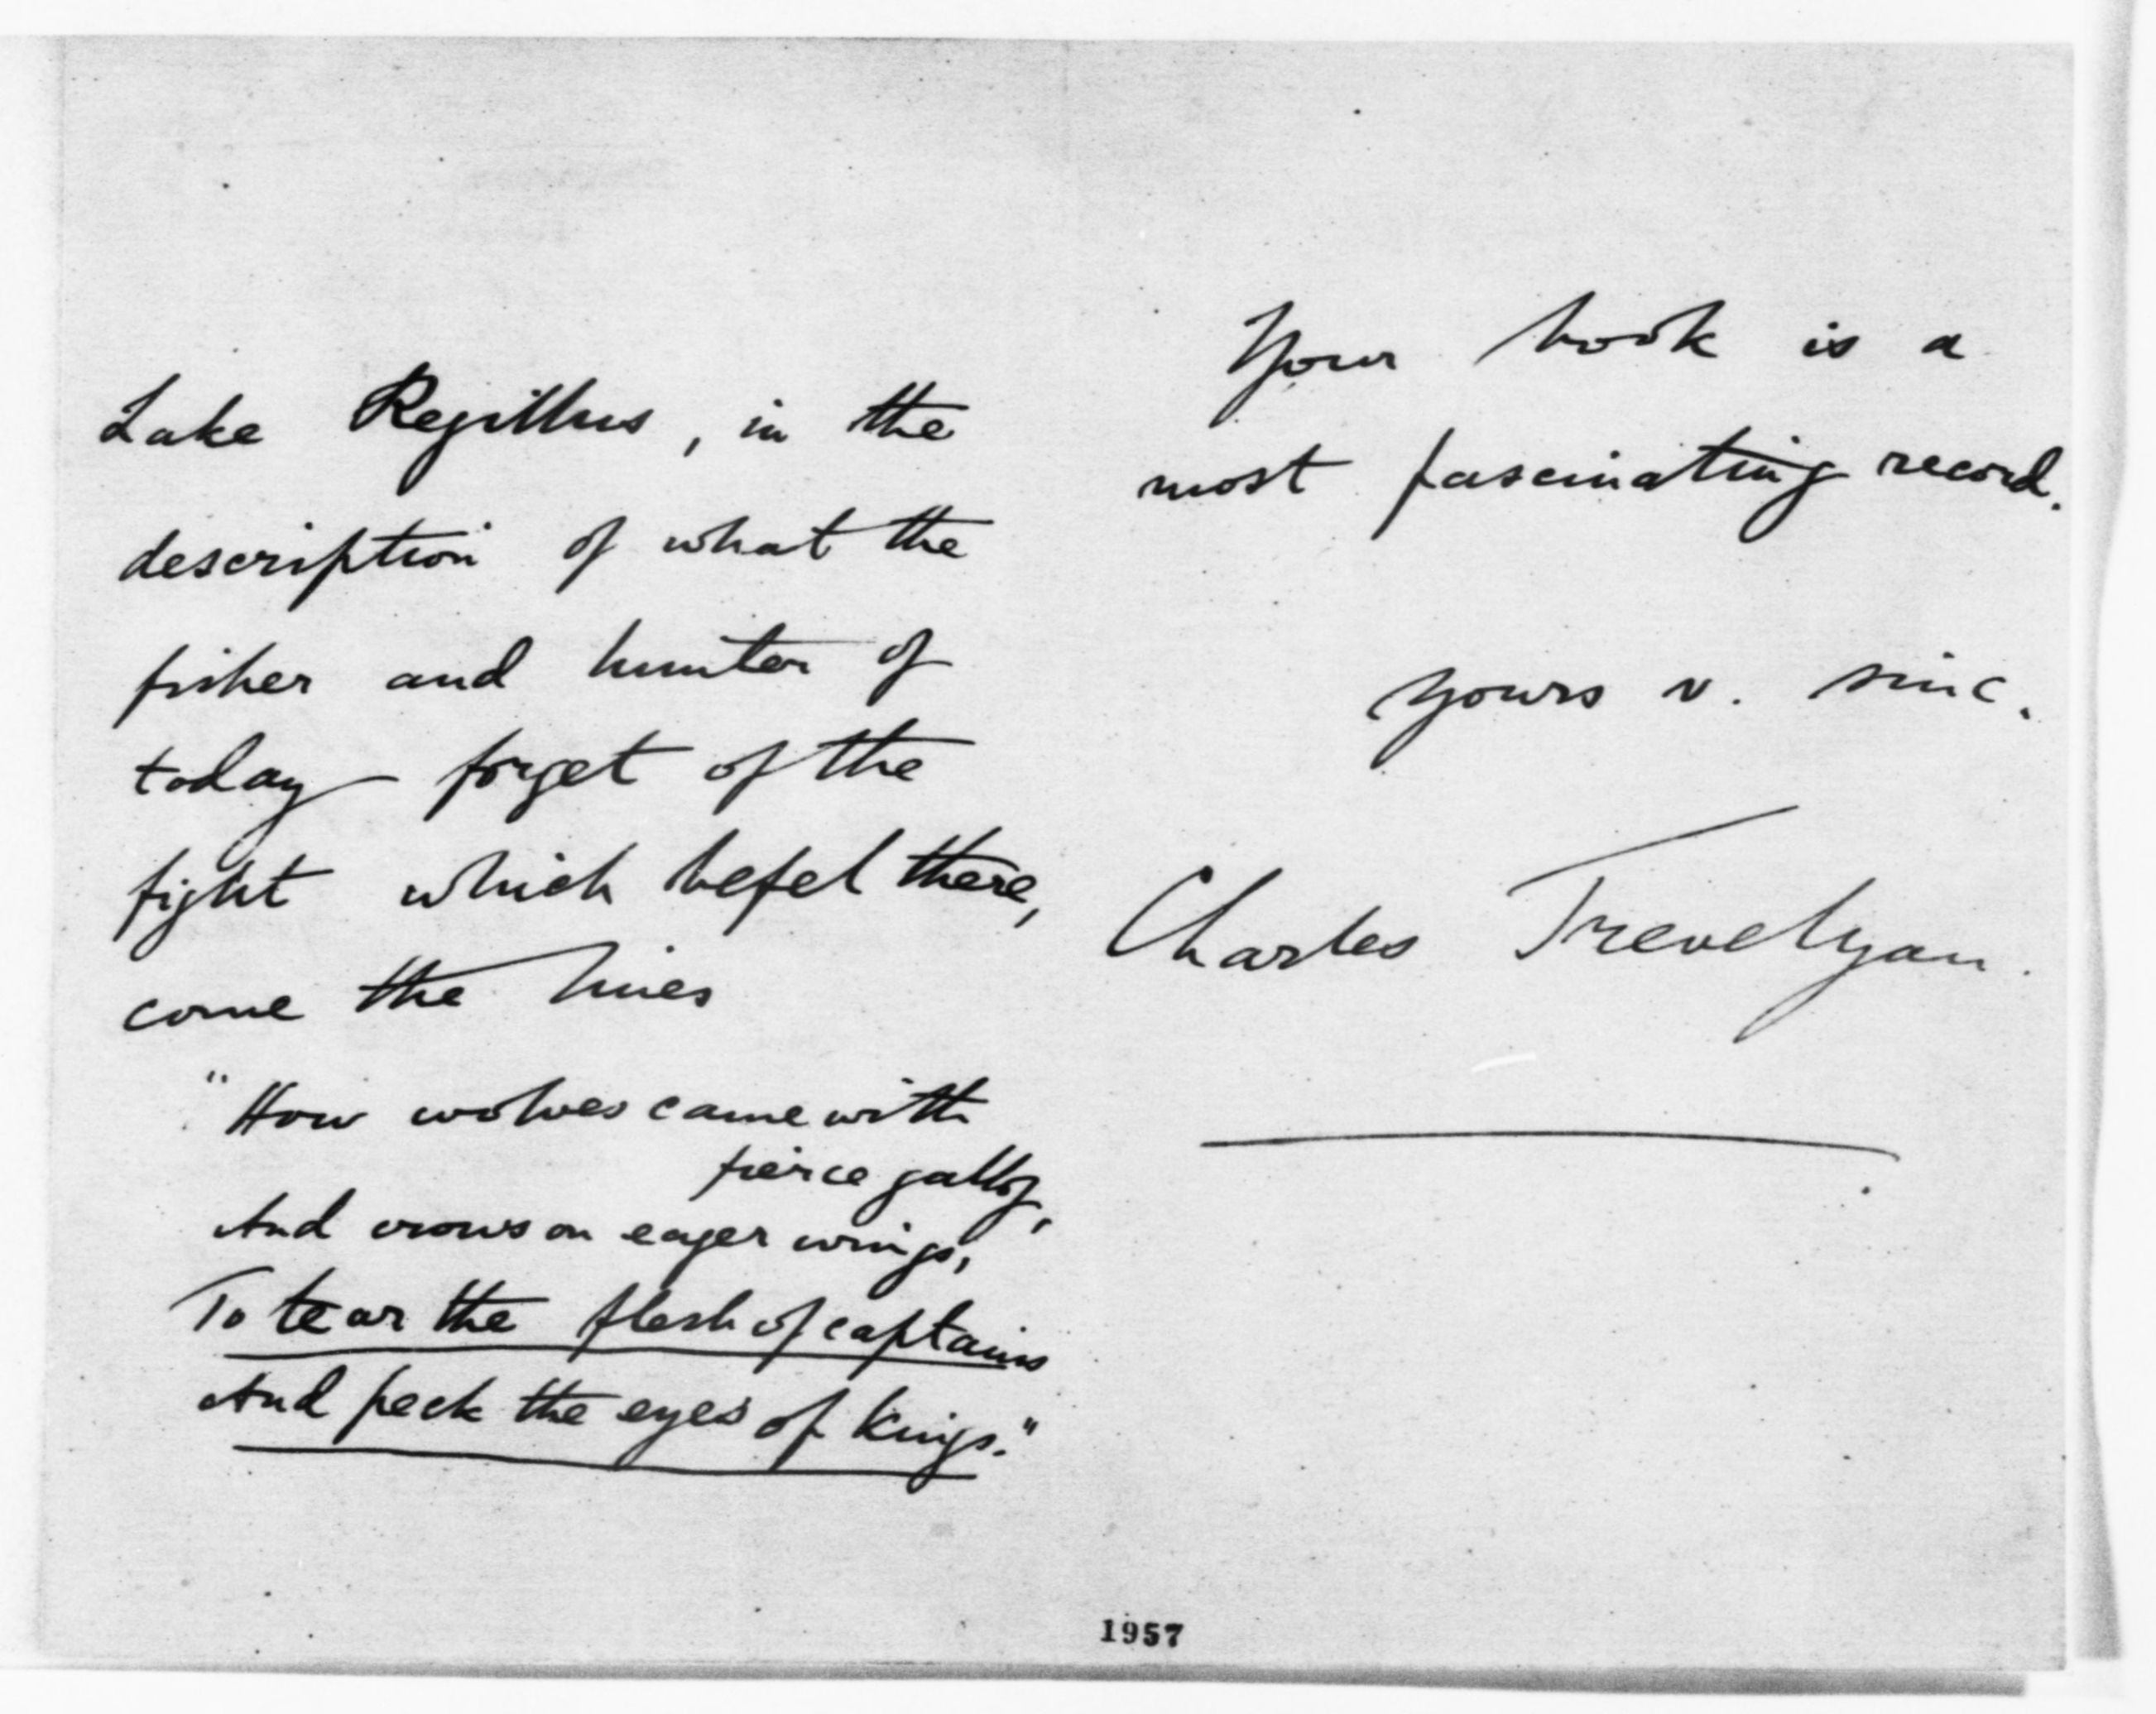 Lake Regillus, in the
description of what the
fisher and hunter of
today forget of the
fight which befel there,
come the lines
"How wolves came with
fierce gallop,
And crows on eager wings,
To tear the flesh of captains
And peck the eyes of Kings."
Your book is a
most fascinating record.
Yours v. sinc.
Charles Trevelyan.
1957